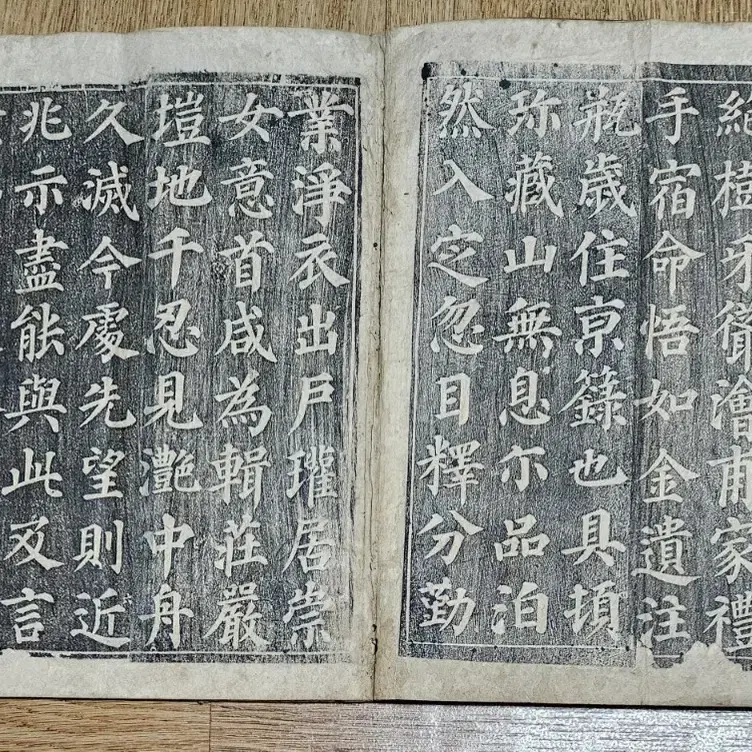 紙樹釆徵澮甫家禮
手宿命悟如金遺注
瓶歲住京籙也具頃
珎藏山無息尒品泊
然入定忽目釋分勤
業淨衣出戶瓘居崇
女意首咸為輯莊嚴
塏地千忍見灔中舟
久滅今處先望則近
兆示盡能與此及言